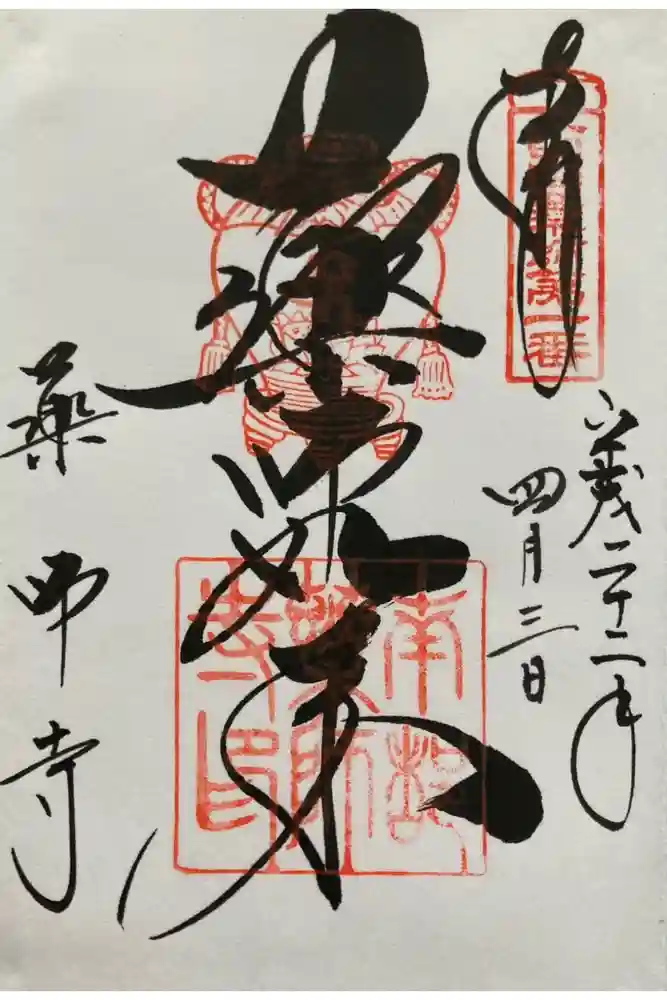 奉拝
第一番
平成二十二年
四月三日
薬師如来
南都
薬師
寺印
薬師寺